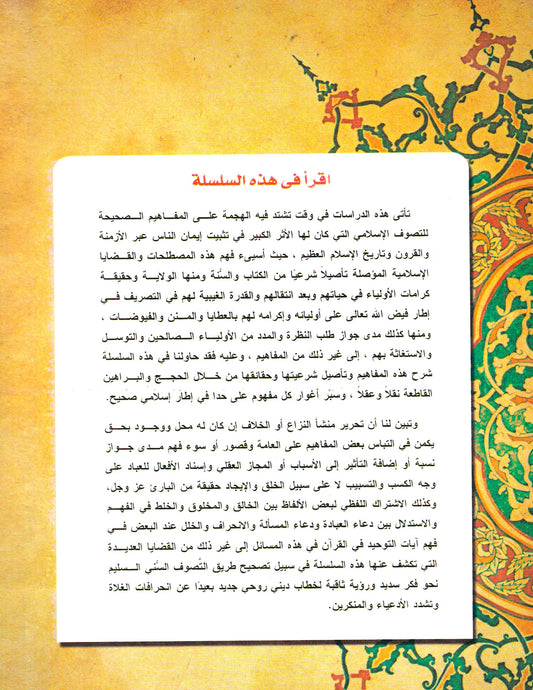 اقرأ فى هذه السلسلة
تأتى هذه الدراسات في وقت تشتد فيه الهجمة على المفاهيم الصحيحة
للتصوف الإسلامي التي كان لها الأثر الكبير في تثبيت إيمان الناس عبر الأزمنة
والقرون وتاريخ الإسلام العظيم ، حيث أسيىء فهم هذه المصطلحات والقضايا
الإسلامية المؤصلة تأصيلاً شرعيًا من الكتاب والسُّنة ومنها الولاية وحقيقة
كرامات الأولياء في حياتهم وبعد انتقالهم والقدرة الغيبية لهم في التصريف في
إطار فيض الله تعالى على أوليائه وإكرامه لهم بالعطايا والمنن والفيوضات ،
ومنها كذلك مدى جواز طلب النظرة والمدد من الأولياء الصالحين والتوسل
والاستغاثة بهم ، إلى غير ذلك من المفاهيم ، وعليه فقد حاولنا في هذه السلسلة
شرح هذه المفاهيم وتأصيل شرعيتها وحقائقها من خلال الحجج والبراهين
القاطعة نقلاً وعقلاً ، وسَبْر أغوار كل مفهوم على حدا في إطار إسلامي صحيح.
وتبين لنا أن تحرير منشأ النزاع أو الخلاف إن كان له محل ووجود بحق
يكمن في التباس بعض المفاهيم على العامة وقصور أو سوء فهم مدى جواز
نسبة أو إضافة التأثير إلى الأسباب أو المجاز العقلي وإسناد الأفعال للعباد على
وجه الكسب والتسبيب لا على سبيل الخلق والإيجاد حقيقة من البارئ عز وجل،
وكذلك الاشتراك اللفظي لبعض الألفاظ بين الخالق والمخلوق والخلط في الفهم
والاستدلال بين دعاء العبادة ودعاء المسألة والانحراف والخلل عند البعض في
فهم آيات التوحيد في القرآن في هذه المسائل إلى غير ذلك من القضايا العديدة
التي تكشف عنها هذه السلسلة في سبيل تصحيح طريق التَّصوف السُّنى السليم
نحو فكر سديد ورؤية ثاقبة لخطاب ديني روحي جديد بعيدًا عن انحرافات الغلاة
وتشدد الأدعياء والمنكرين.